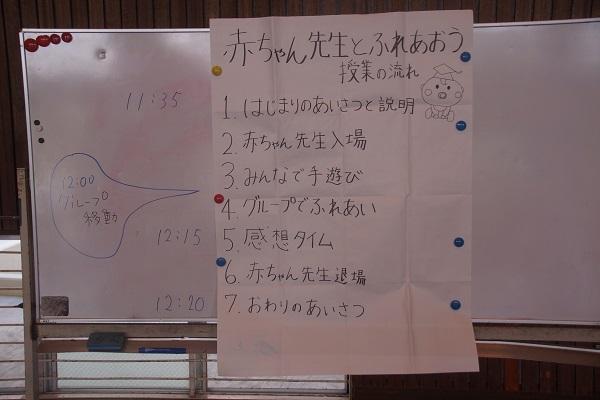 赤ちゃん先生とふれあおう
授業の流れ
1. はじまりのあいさつと説明
2. 赤ちゃん先生入場
3. みんなで手遊び
4. グループでふれあい
5. 感想タイム
6. 赤ちゃん先生退場
7. おわりのあいさつ
11:35
12:00
グループ
移動
12:15
12:20